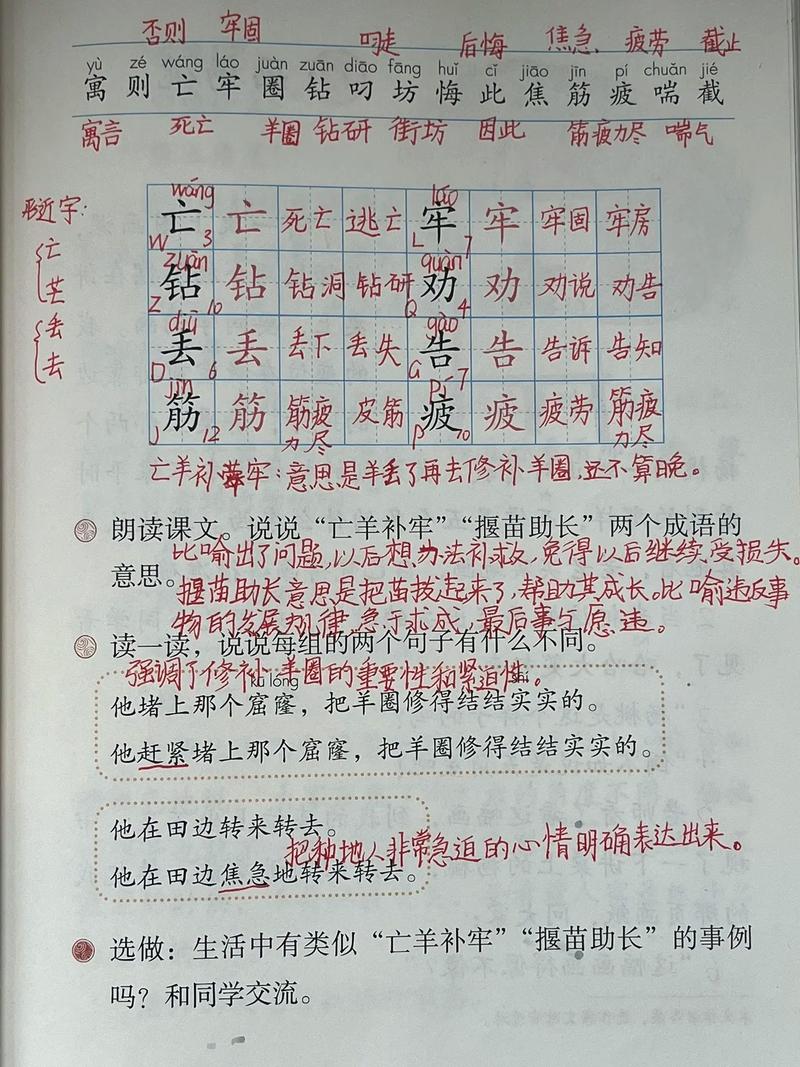 否则 牢固 叼走 后悔 焦急 疲劳 截止
yù zé wáng láo juàn zuān diāo fāng huǐ cǐ jiāo jīn pí chuǎn jié
寓 则 亡 牢 圈 钻 叼 坊 悔 此 焦 筋 疲 喘 截
寓言 死亡 羊圈 钻研 街坊 因此 筋疲力尽 喘气
形近字:
亡
芒
丢
去
wáng láo
亡 亡 死亡 逃亡 牢 牢 牢固 牢房
W 3 L 7
zuān quàn
钻 钻 钻洞 钻研 劝 劝 劝说 劝告
Z 10 Q 4
diū gào
丢 丢 丢下 丢失 告 告 告诉 告知
D 6 G 7
jīn pí
筋 筋 筋疲力尽 皮筋 疲 疲 疲劳 筋疲力尽
J 12 P 10
亡羊补牢:意思是羊丢了再去修补羊圈,还不算晚。
朗读课文。说说“亡羊补牢”“揠苗助长”两个成语的
比喻出了问题,以后想办法补救,免得以后继续受损失。
意思。
揠苗助长意思是把苗拔起来了,帮助其成长。比喻违反事
物的发展规律,急于求成,最后事与愿违。
读一读,说说每组的两个句子有什么不同。
强调了修补羊圈的重要性和紧迫性。
lóng shi
他堵上那个窟窿,把羊圈修得结结实实的。
他赶紧堵上那个窟窿,把羊圈修得结结实实的。
他在田边转来转去。
把种地人非常急迫的心情明确表达出来。
他在田边焦急地转来转去。
选做:生活中有类似“亡羊补牢”“揠苗助长”的事例
吗?和同学交流。